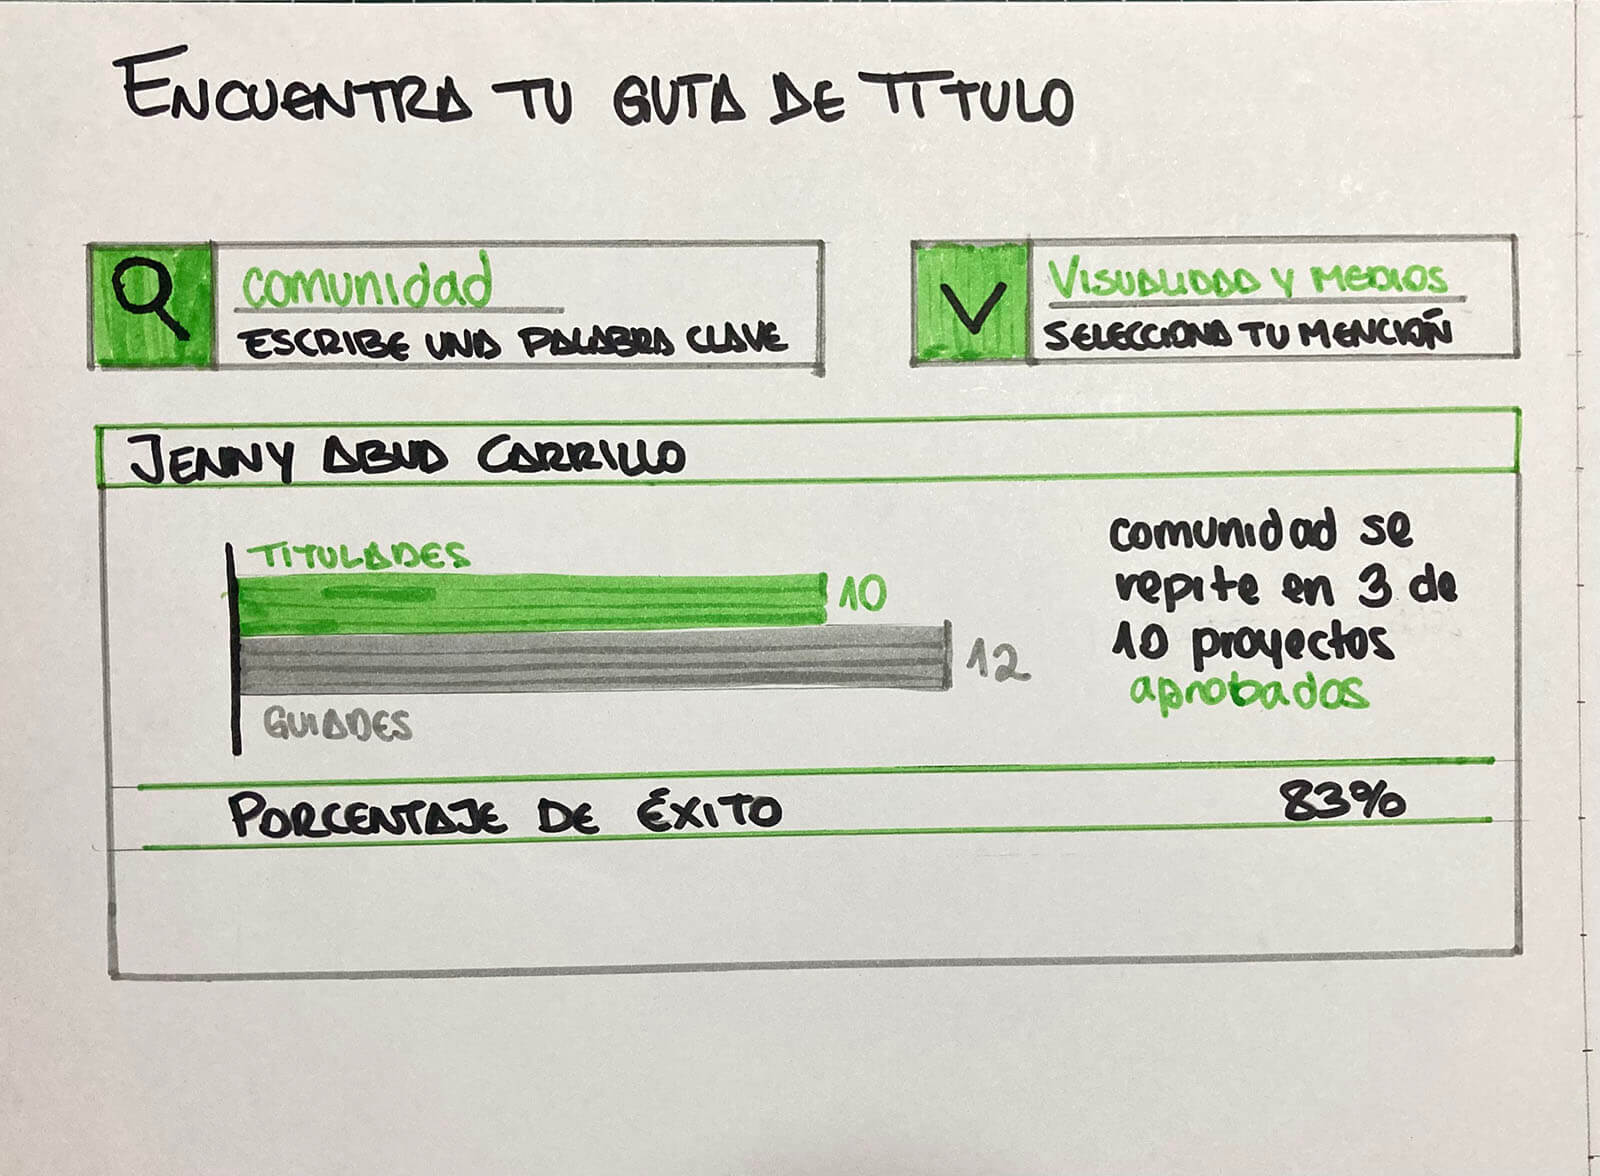 ENCUENTRA TU GUIA DE TITULO
comunidad
ESCRIBE UNA PALABRA CLAVE
VISUALIDAD Y MEDIOS
SELECCIONA TU MENCIÓN
JENNY ABUD CARRILLO
TITULADES
10
12
GUIADES
comunidad se
repite en 3 de
10 proyectos
aprobados
PORCENTAJE DE ÉXITO 83%